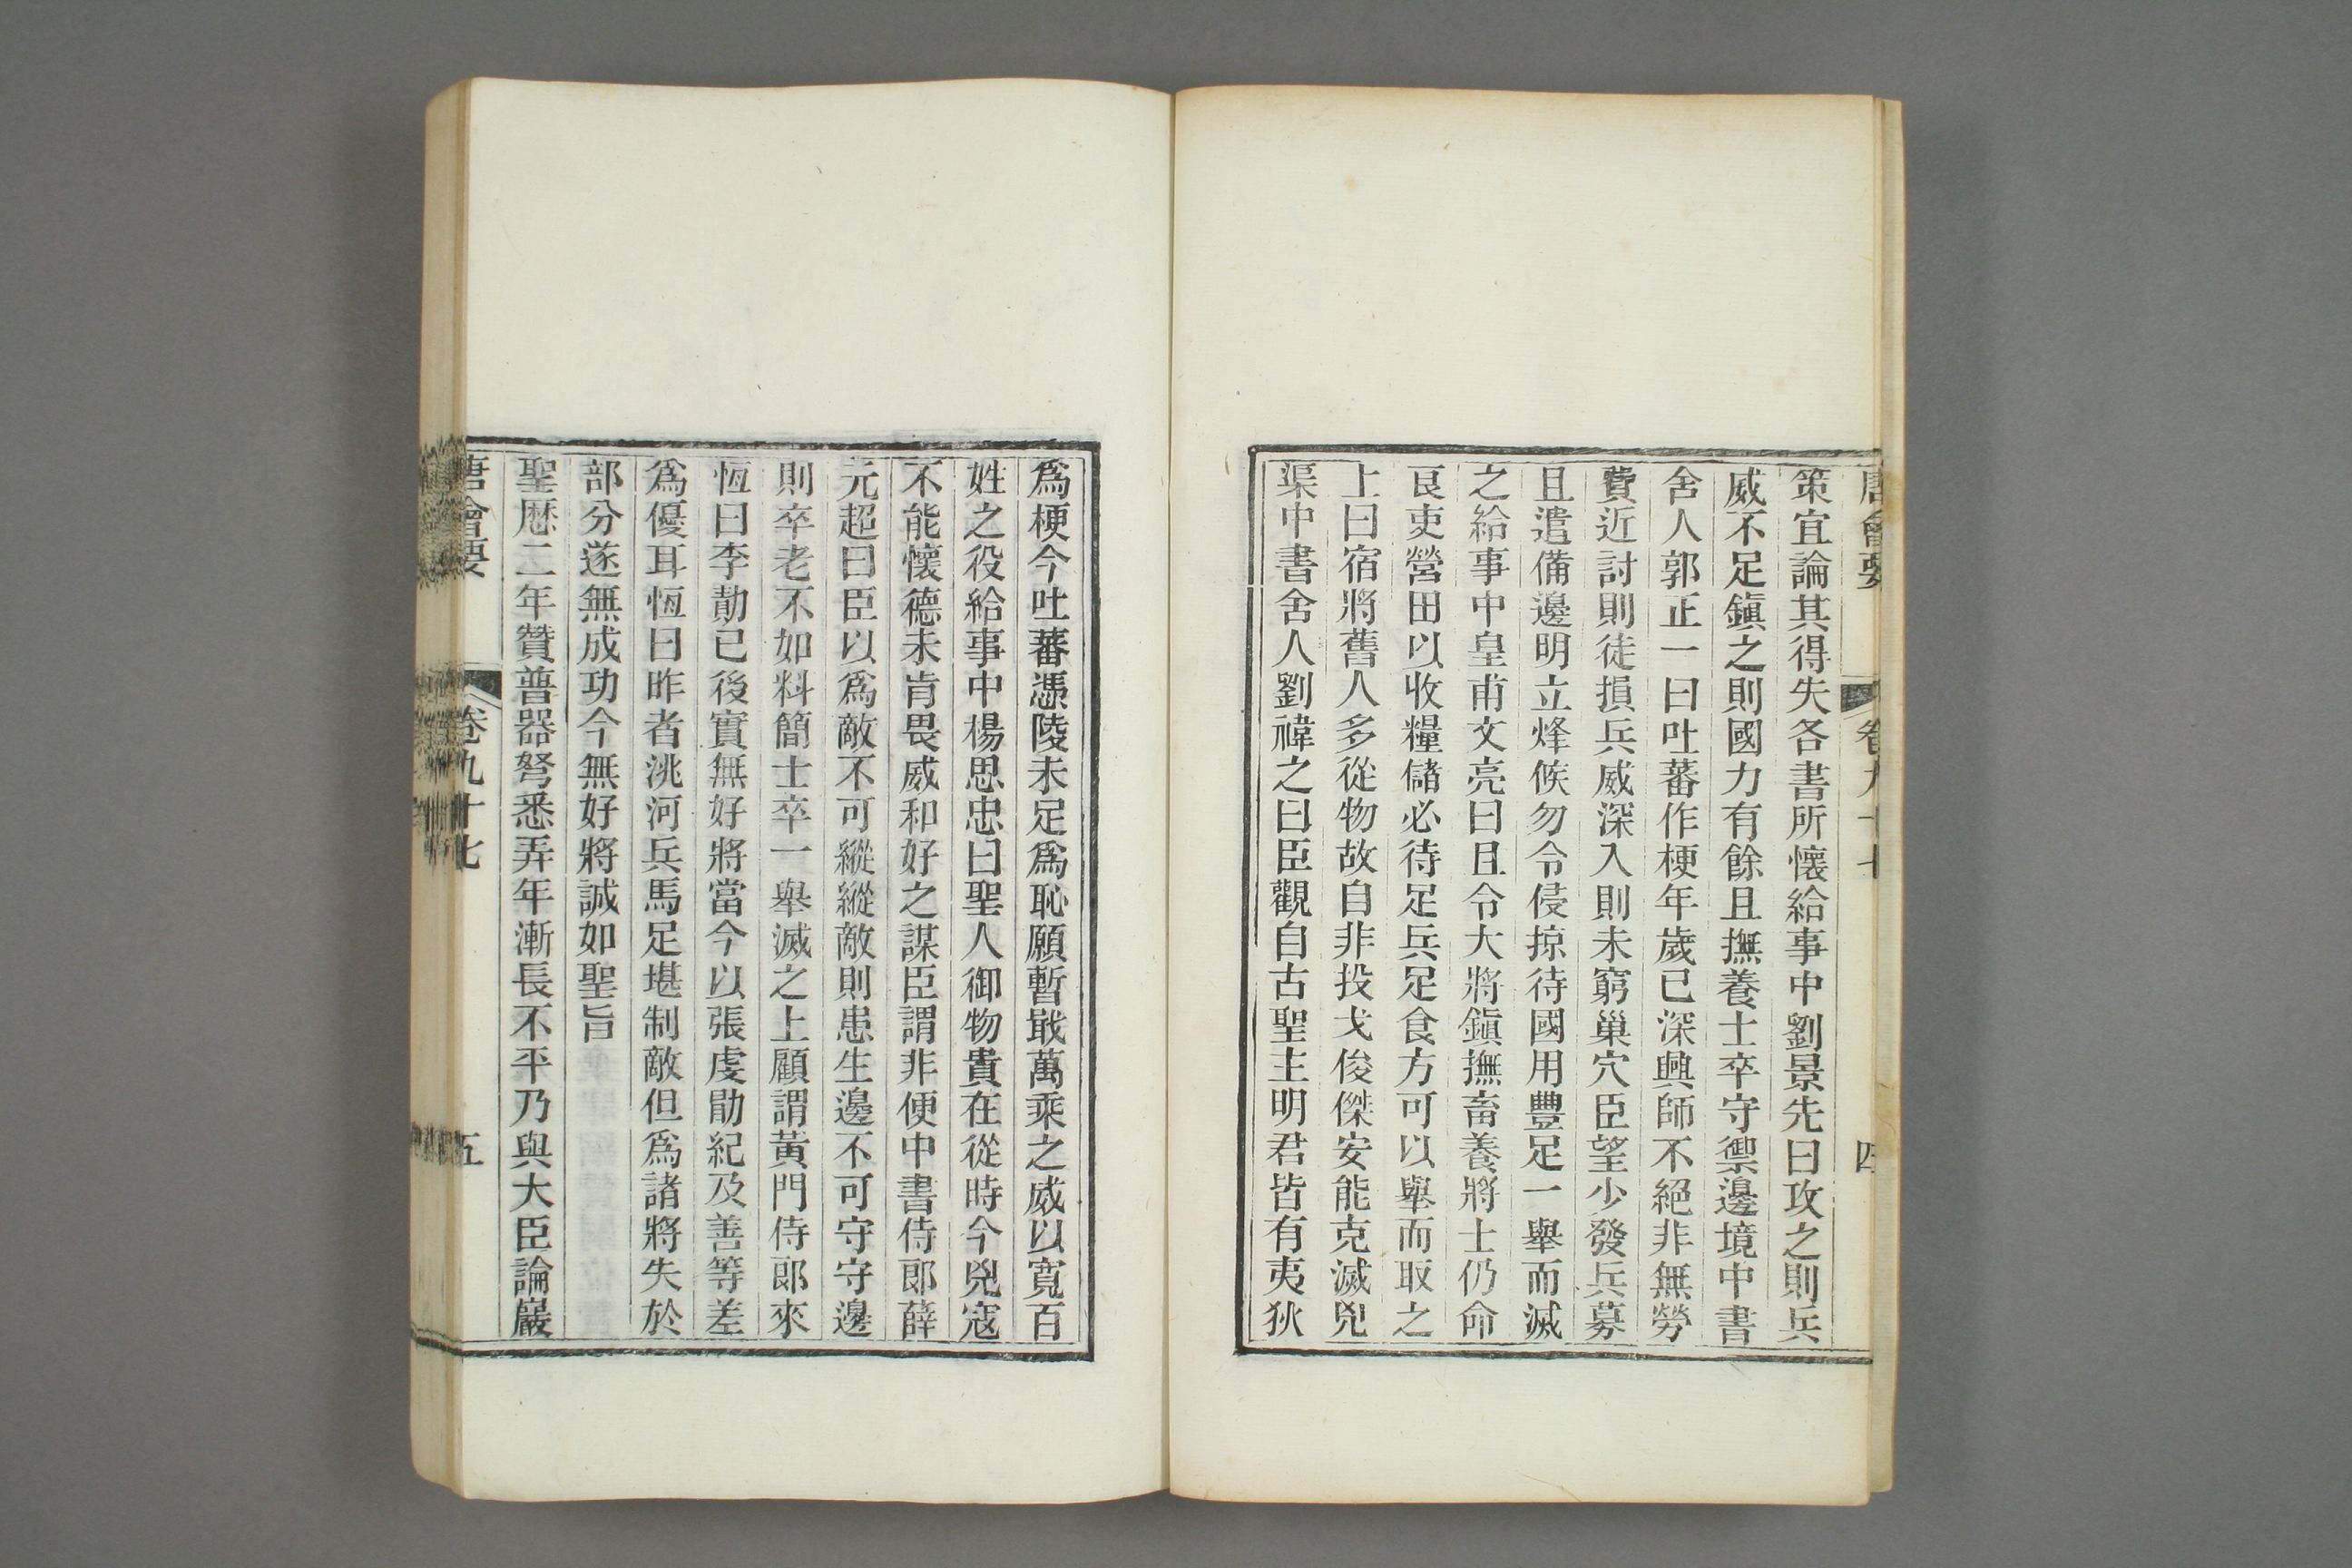 唐會要 卷九十七 四
策宜論其得失各書所懷給事中劉景先曰攻之則兵
威不足鎭之則國力有餘且撫養士卒守禦邊境中書
舍人郭正一曰吐蕃作梗年歲已深興師不絕非無勞
費近討則徒損兵威深入則未窮巢穴臣望少發兵募
且遣備邊明立烽候勿令侵掠待國用豐足一舉而滅
之給事中皇甫文亮曰且令大將鎭撫畜養將士仍命
良吏營田以收糧儲必待足兵足食方可以舉而取之
上曰宿將舊人多從物故自非投戈俊傑安能克滅兇
渠中書舍人劉禕之曰臣觀自古聖主明君皆有夷狄
爲梗今吐蕃憑陵未足爲恥願暫戢萬乘之威以寬百
姓之役給事中楊思忠曰聖人御物貴在從時今兇寇
不能懷德未肯畏威和好之謀臣謂非便中書侍郎薛
元超曰臣以爲敵不可縱縱敵則患生邊不可守守邊
則卒老不如料簡士卒一舉滅之上顧謂黃門侍郎來
恆曰李勣已後實無好將當今以張虔勖紀及善等差
爲優耳恆曰昨者洮河兵馬足堪制敵但爲諸將失於
部分遂無成功今無好將誠如聖旨
聖厯二年贊普器弩悉弄年漸長不平乃與大臣論巖
唐會要 卷九十七 五